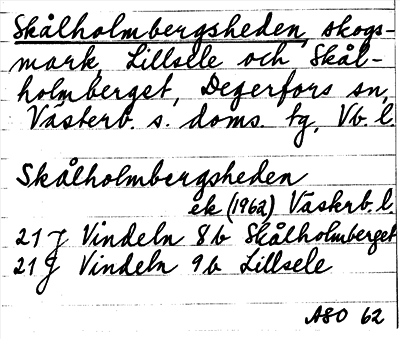 Skålholmbergsheden, skogs-
mark, Lillsele och Skål-
holmberget, Degerfors sn,
Västerb. s. doms. tg, Vb. l.
Skålholmbergsheden
ek (1962) Västerb. l.
21 J Vindeln 8b Skålholmberget
21 J Vindeln 9b Lillsele
ASO 62